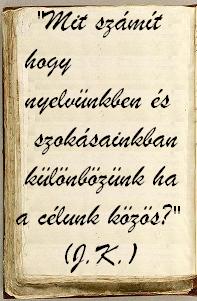 "Mit számít
hogy
nyelvünkben és
szokásainkban
különbözünk ha
a célunk közös?"
(J. K.)